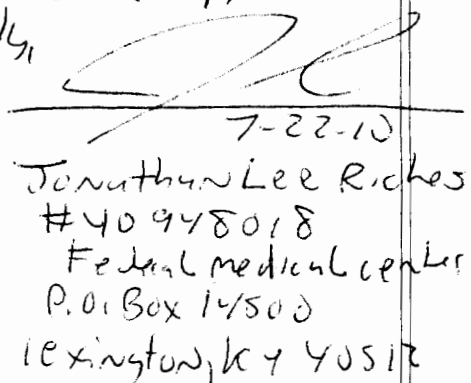 7-22-10
Jonathan Lee Riches
#40948018
Federal medical center
P.O. Box 14500
lexington, KY 40512